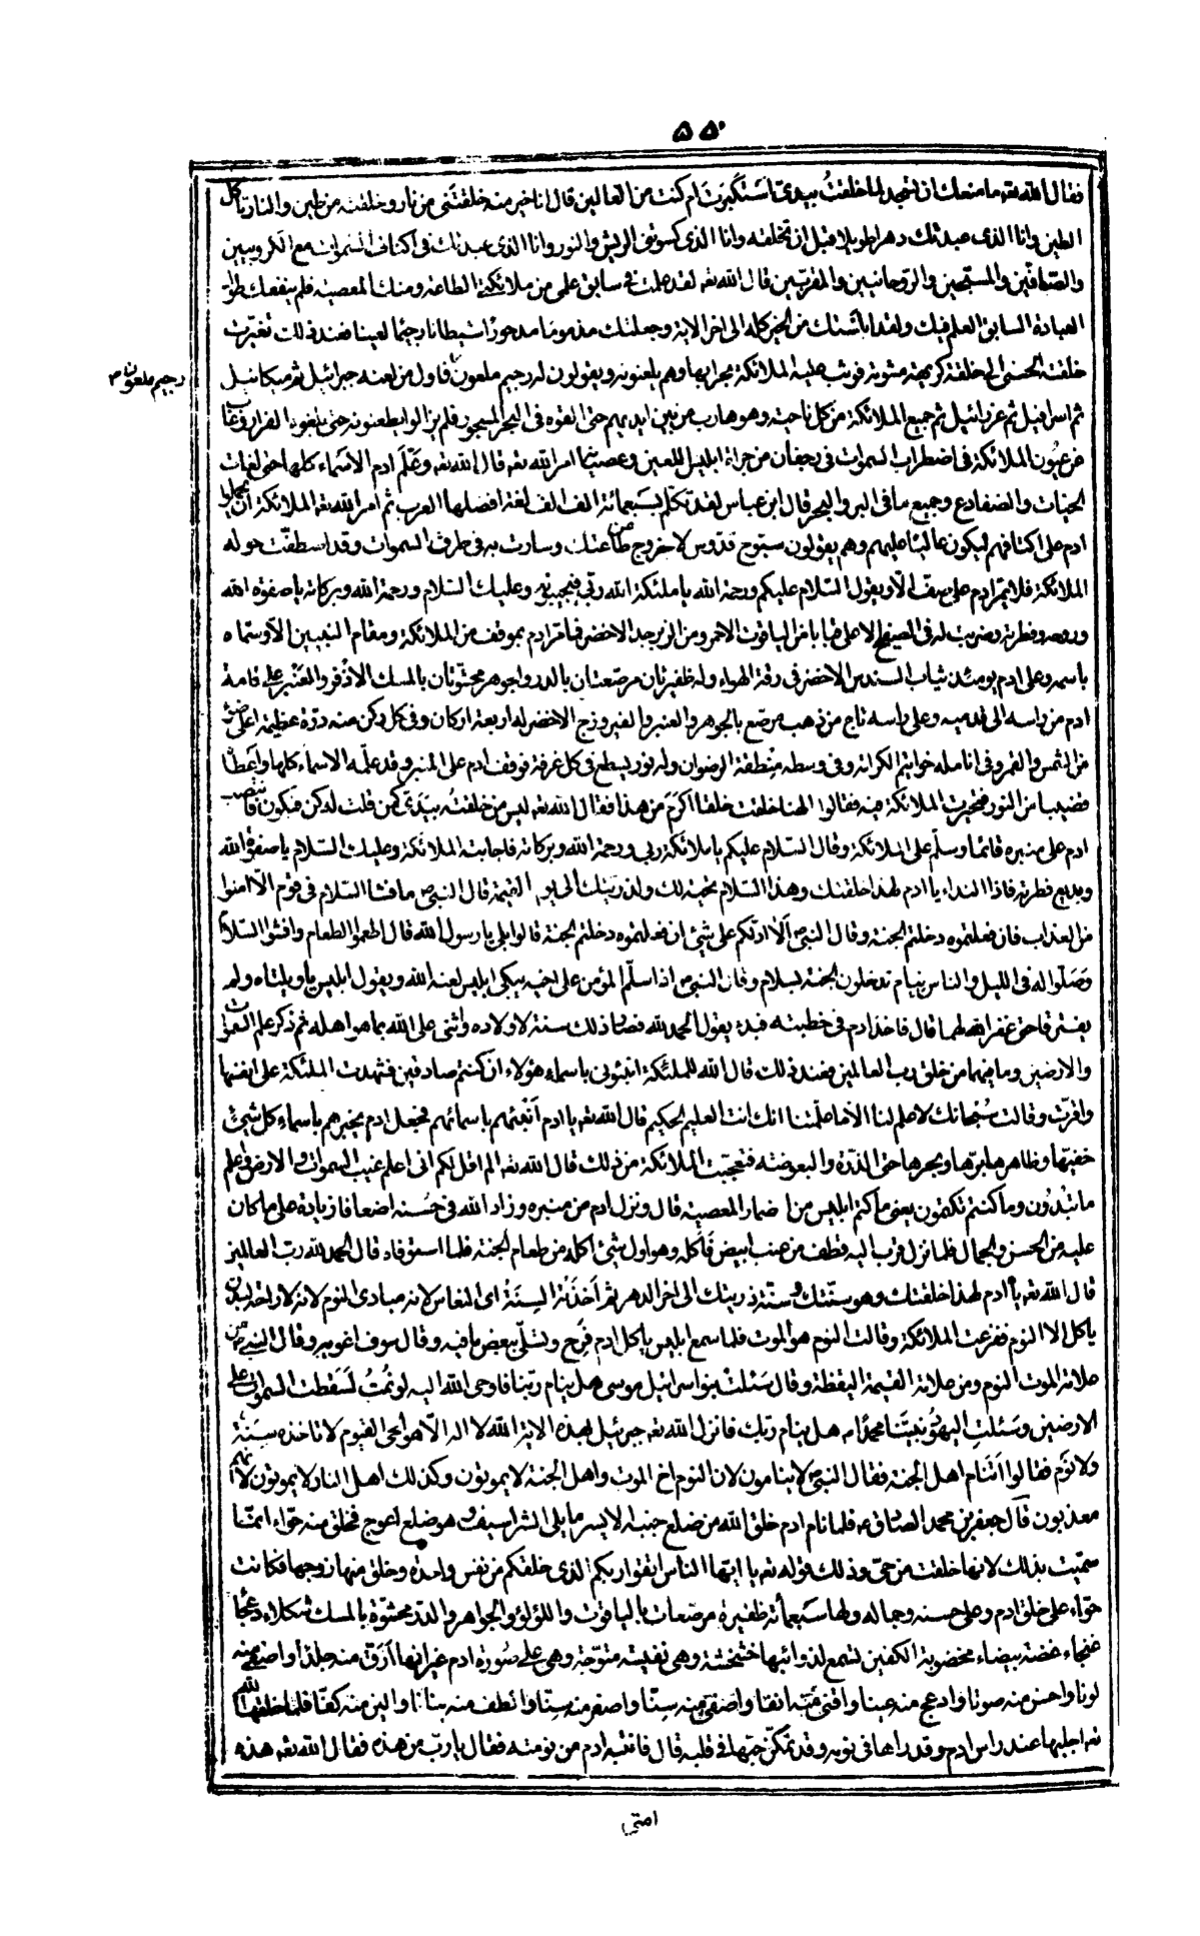 ٥٥٠
فقال الله تعه ما منعك ان تسجد لما خلقت بيدي استكبرت ام كنت من العالين قال انا خير منه خلقتني من نار وخلقته من طين والنار تاكل
الطين وانا الذي عبدتك دهرا طويلا قبل ان تخلقه وانا الذي كسوتني الريش والنور وانا الذي عبدتك في اكناف السموات مع الكروبيين
والصافّين والمسبّحين والروحانيين والمقربين قال الله تعه لقد علمت في سابق علمي من ملائكتي الطاعة ومنك المعصية فلم ينفعك طول
العبادة لسابق العلم فيك ولقد ابأستك من الخير كله الى اخر الابد وجعلتك مذموما مدحورا شيطانا رجيما لعينا فعند ذلك تغيرت
خلقته الحسنى الى خلقة كريهة مشوهة فوثب عليه الملائكة بحرابها وهم يلعنونه ويقولون له رجيم ملعون فاول من لعنه جبرائيل ثم ميكائيل
رجيم ملعون
ثم اسرافيل ثم عزرائيل ثم جميع الملائكة من كل ناحية وهو هارب من بين ايديهم حتى القوه في البحر المسجور فلم يزالوا يطعنونه حتى بلغوه القرار وغاب
عن عيون الملائكة في اضطراب السموات في رجفان من جراة ابليس اللعين وعصيانه امر الله تعه قال الله تعه وعلّم ادم الاسماء كلها حتى لغات
الحيات والضفادع وجميع ما في البر والبحر قال ابن عباس لقد تكلم بسبعمائة الف لغة افضلها العرب ثم امر الله تعه الملائكة ان يحملوا
ادم على اكتافهم ليكون عاليا عليهم وهم يقولون سبوح قدوس لا خروج عن طاعتك وسارت به في طرف السموات وقد اسطفت حوله
الملائكة فلا يمر ادم على صف الا ويقول السلام عليكم ورحمة الله يا ملئكة الله ربي فيجيبونه وعليك السلام ورحمة الله وبركاته يا صفوة الله
وروحه وفطرته وضربت له في الصفيح الاعلى قبابا من الياقوت الاحمر ومن الزبرجد الاخضر فما مر ادم بموقف من الملائكة ومقام النبيين الا وسماه
باسمه وعلى ادم يومئذ ثياب السندس الاخضر في رقة الهواء وله ظفيرتان مرصعتان بالدر والجوهر محشوتان بالمسك الاذفر والعنبر على قامة
ادم من راسه الى قدميه وعلى راسه تاج من ذهب مرصع بالجوهر والعنبر والفيروزج الاخضر له اربعة اركان وفي كل ركن منه درة عظيمة اعلى ضوء
من الشمس والقمر وفي انامله خواتيم الكرامة وفي وسطه منطقة الرضوان وله نور يسطع في كل غرفة فوقف ادم على المنبر وقد علّمه الاسماء كلها واعطاه
قضيبا من النور فتحيرت الملائكة فيه فقالوا الهنا خلقت خلقا اكرم من هذا فقال الله تعه ليس من خلقته بيدي كمن قلت له كن فيكون فانتصب
ادم على منبره قائما وسلّم على الملائكة وقال السلام عليكم يا ملائكة ربي ورحمة الله وبركاته فاجابته الملائكة وعليك السلام يا صفوة الله
وبديع فطرته فاذا النداء يا ادم لهذا خلقتك وهذا السلام تحية لك ولذريتك الى يوم القيمة قال النبي ص ما فشا السلام في قوم الا امنوا
من العذاب فان فعلتموه دخلتم الجنة وقال النبي ص الا ادلكم على شيئ ان فعلتموه دخلتم الجنة قالوا بلى يا رسول الله قال اطعموا الطعام وافشوا السلام
وصلوا له في الليل والناس نيام تدخلون الجنة بسلام وقال النبي ص اذا سلّم المؤمن على اخيه يبكى ابليس لعنه الله ويقول ابليس يا ويلتاه ولم
يفترقا حتى غفر الله لهما قال فاخذ ادم في خطبته فبدء يقول الحمد لله فصار ذلك سنة لاولاده واثنى على الله بما هو اهله ثم ذكر علم السموات
والارضين وما فيهما من خلق رب العالمين فعند ذلك قال الله للملئكة انبئوني باسماء هؤلاء ان كنتم صادقين فشهدت الملئكة على انفسها
واقرت وقالت سبحانك لا علم لنا الا ما علّمتنا انك انت العليم الحكيم قال الله تعه يا ادم انبئهم باسمائهم فجعل ادم يخبرهم باسماء كل شيئ
خفيها وظاهرها برها وبحرها حتى الذرة والبعوضة فتعجبت الملائكة من ذلك قال الله تعه الم اقل لكم اني اعلم غيب السموات والارض واعلم
ما تبدون وما كنتم تكتمون يعني ما كتم ابليس من اضمار المعصية قال ونزل ادم من منبره وزاد الله في حسنه اضعافا زيادة على ما كان
عليه من الحسن والجمال فلما نزل قرب اليه قطف من عنب ابيض فاكله وهو اول شيئ اكله من طعام الجنة فلما استوفاه قال الحمد لله رب العالمين
قال الله تعه يا ادم لهذا خلقتك وهو سنتك وسنة ذريتك الى اخر الدهر ثم اخذته السنة اى النعاس لانه مبادى النوم لانه لا راحة لبدن
ياكل الا النوم ففزعت الملائكة وقالت النوم هو الموت فلما سمع ابليس باكل ادم فرح وتسلى ببعض ما فيه وقال سوف اغويه وقال النبي ص من
علامة الموت النوم ومن علامة القيمة اليقظة وقال سئلت بنو اسرائيل موسى هل ينام ربنا فاوحى الله اليه لو نمت لسقطت السموات على
الارضين وسئلت اليهود نبينا محمدا ص هل ينام ربك فانزل الله تعه جبرئيل بهذه الاية الله لا اله الا هو الحي القيوم لا تاخذه سنة
ولا نوم فقالوا اتنام اهل الجنة فقال النبي ص لا ينامون لان النوم اخ الموت واهل الجنة لا يموتون وكذلك اهل النار لا يموتون لانهم
معذبون قال جعفر بن محمد الصادق ع فلما نام ادم خلق الله من ضلع جنبه الايسر مما يلي الشراسيف وهو ضلع اعوج فخلق منه حواء انما
سميت بذلك لانها خلقت من حي وذلك قوله تعه يا ايها الناس اتقوا ربكم الذي خلقكم من نفس واحدة وخلق منها زوجها فكانت
حواء على خلق ادم وعلى حسنه وجماله ولها سبعمائة ظفيرة مرصعات بالياقوت واللؤلؤ والجواهر والدر محشوة بالمسك شكلاء دعجاء
غنجاء غضة بيضاء مخضوبة الكفين تسمع لذوائبها خشخشة وهي نفيسة متوجة وهي على صورة ادم غير انها ارق منه جلدا واصفى منه
لونا واحسن منه صوتا وادعج منه عينا واقنى منه انفا واصفى منه سنا واصغر منه سنا والطف منه بنانا والين منه كفا فلما خلقها الله
تعه اجلسها عند راس ادم وقد راها في نومه وقد تمكن حبها في قلبه قال فانتبه ادم من نومته فقال يا رب من هذه فقال الله تعه هذه
امتي